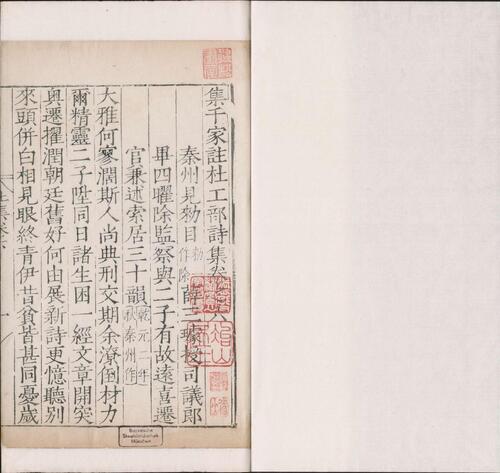 集千家註杜工部詩集卷之六
秦州見勑目 勑一作除 薛三璩授司議郎
畢四曜除監察與二子有故遠喜遷
官兼述索居三十韻 乾元二年秋秦州作
大雅何寥濶斯人尚典刑交期余潦倒材力
爾精靈二子陞同日諸生困一經文章開突
奥遷擢潤朝廷舊好何由展新詩更憶聽別
來頭併白相見眼終青伊昔貧皆甚同憂歲
Bayerische
Staatsbibliothek
München